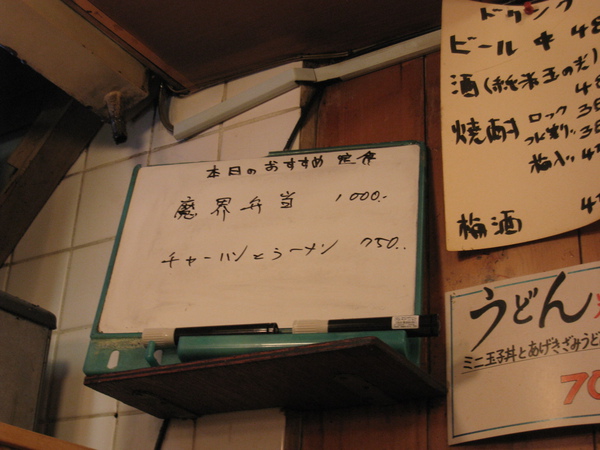 本日のおすすめ 定食
魔界弁当 1000.-
チャーハンとラーメン 750..
ドリンク
ビール 中 48
酒(純米玉の光)
48
焼酎 ロック 38
水割り 38
梅入り 4
梅酒 4
うどん
ミニ玉子丼とあげきざみうど
70